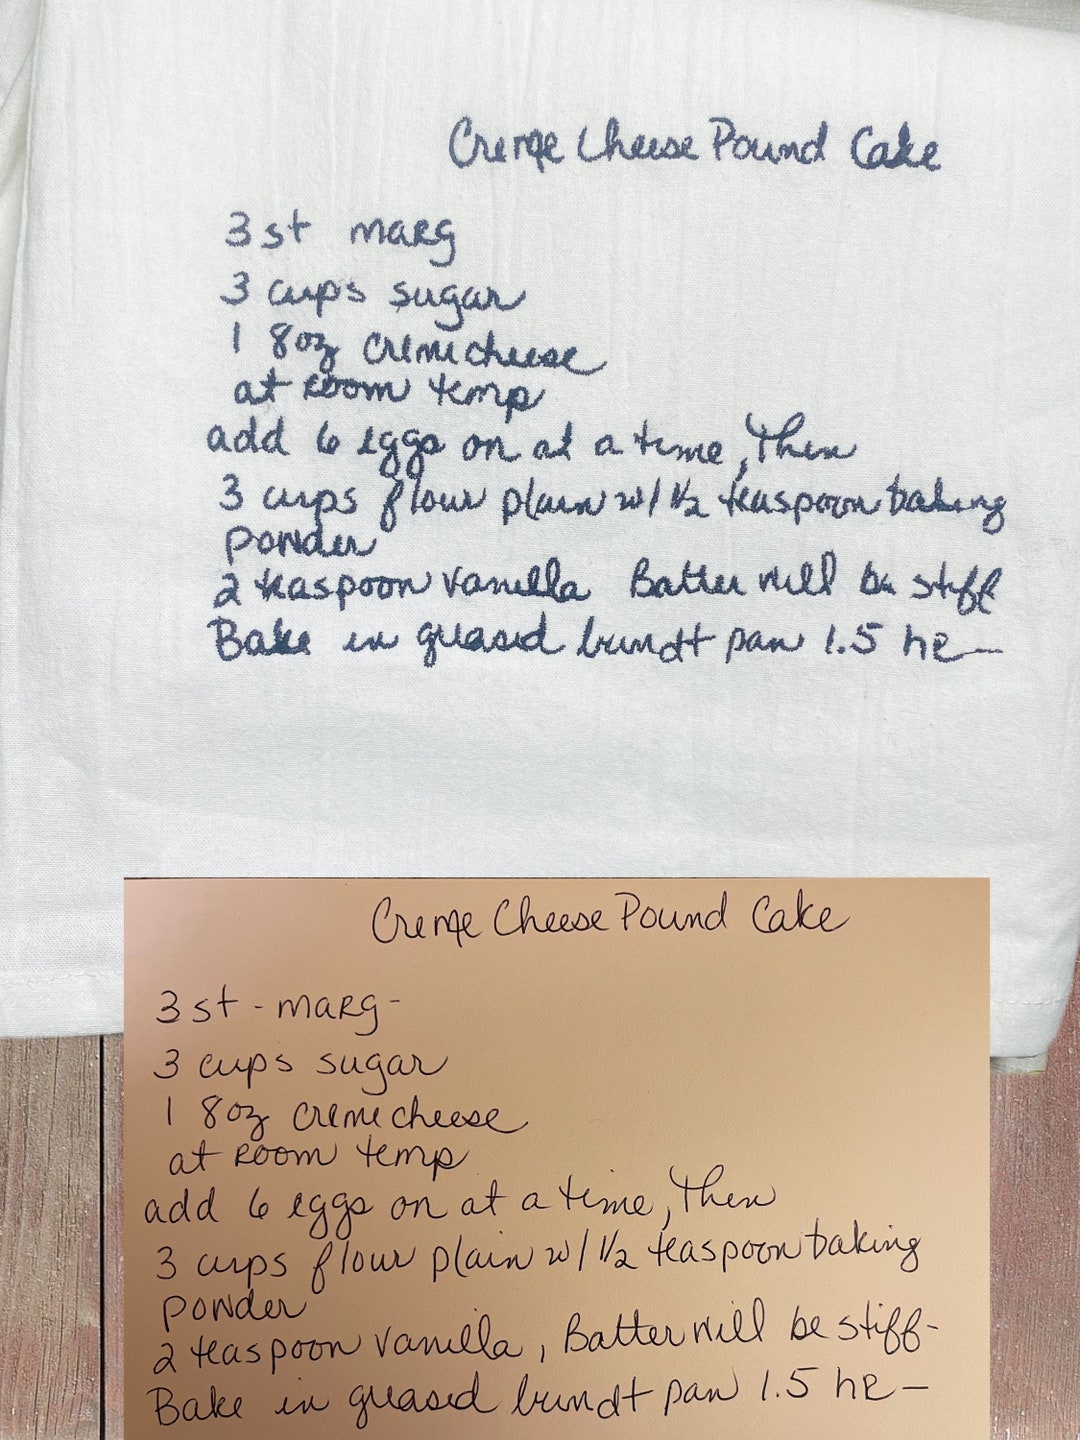 Creme Cheese Pound Cake
3 st marg
3 cups sugar
1 8oz creme cheese
at room temp
add 6 eggs on at a time, Then
3 cups flour plain w/ 1/2 teaspoon baking
powder
2 teaspoon vanilla Batter will be stiff
Bake in greased bundt pan 1.5 hr —
Creme Cheese Pound Cake
3 st - marg -
3 cups sugar
1 8oz creme cheese
at room temp
add 6 eggs on at a time, Then
3 cups flour plain w/ 1/2 teaspoon baking
powder
2 teaspoon vanilla, Batter will be stiff -
Bake in greased bundt pan 1.5 hr —